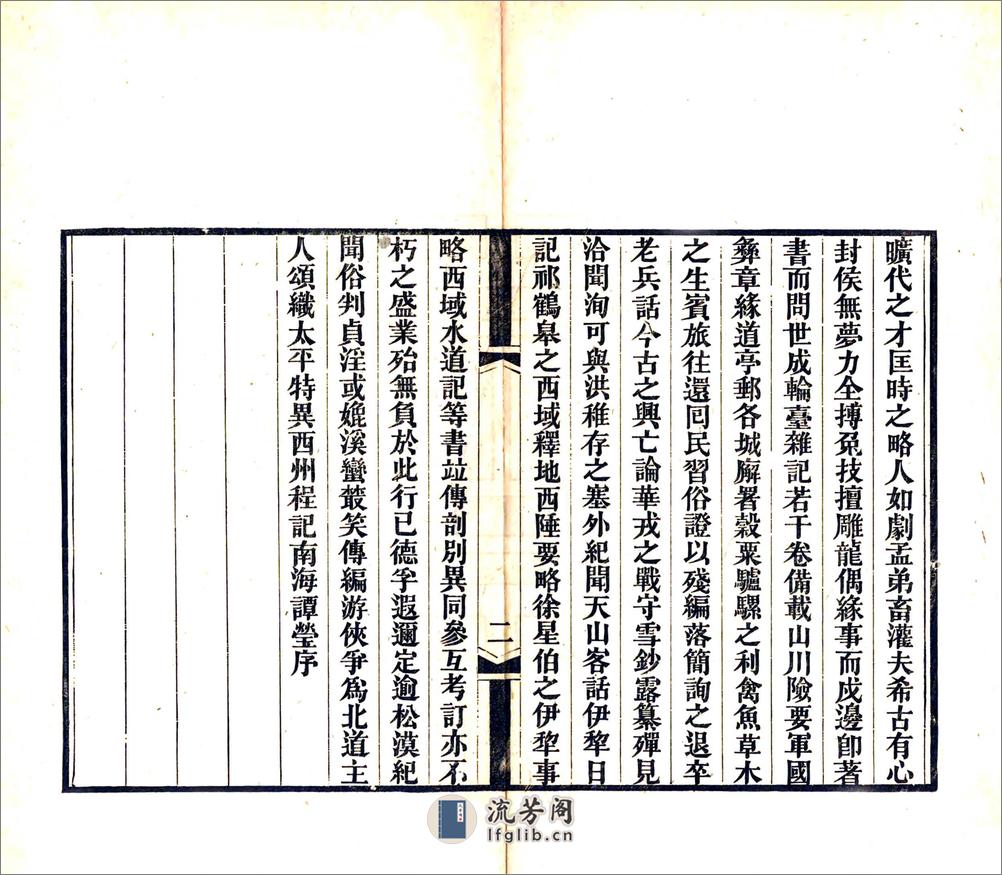 曠代之才匡時之略人如劇孟弟畜灌夫希古有心
封侯無夢力全搏兔技擅雕龍偶緣事而戍邊卽著
書而問世成輪臺雜記若干卷備載山川險要軍國
彝章緣道亭郵各城廨署穀粟驢騾之利禽魚草木
之生賓旅往還囘民習俗證以殘編落簡詢之退卒
老兵話今古之興亡論華戎之戰守雪鈔露纂殫見
洽聞洵可與洪稚存之塞外紀聞天山客話伊犂日
記祁鶴皋之西域釋地西陲要略徐星伯之伊犂事
二
略西域水道記等書竝傳剖別異同參互考訂亦不
朽之盛業殆無負於此行已德孚遐邇定逾松漠紀
聞俗判貞淫或媲溪蠻叢笑傳編游俠爭爲北道主
人頌纖太平特異西州程記南海譚瑩序
流芳阁
lfglib.cn